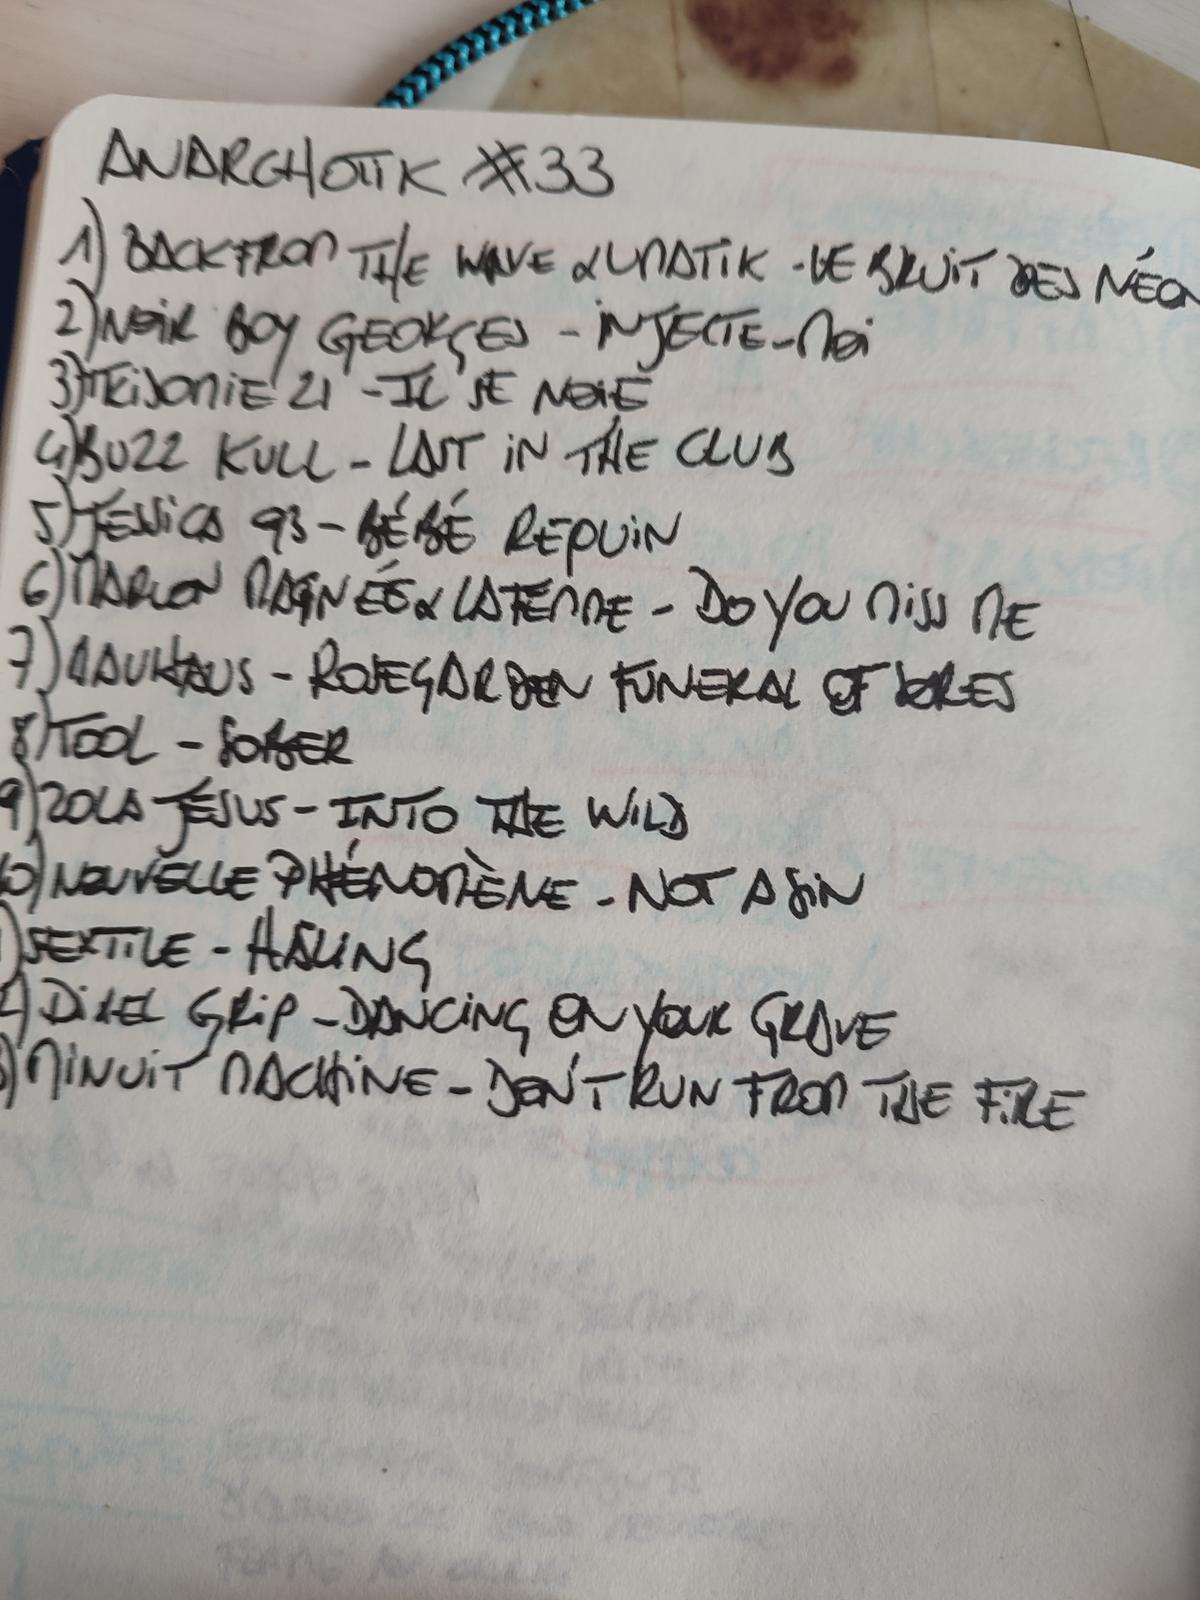 ANARCHOTIK #33
1) BACK FROM THE WAVE & LUNATIK - LE BRUIT DES NÉON
2) NOIR BOY GEORGES - INJECTE-MOI
3) TRISOMIE 21 - IL SE NOIE
4) BUZZ KULL - LAST IN THE CLUB
5) JESSICA 93 - BÉBÉ REQUIN
6) MARLON MAGNÉE & LATEMME - DO YOU MISS ME
7) BAUHAUS - ROSEGARDEN FUNERAL OF SORES
8) TOOL - SOBER
9) ZOLA JÉSUS - INTO THE WILD
10) NOUVELLE PHÉNOMÈNE - NOT A SIN
) SEXTILE - HASING
2) DIXEL GRIP - DANCING ON YOUR GRAVE
3) MINUIT MACHINE - DON'T RUN FROM THE FIRE